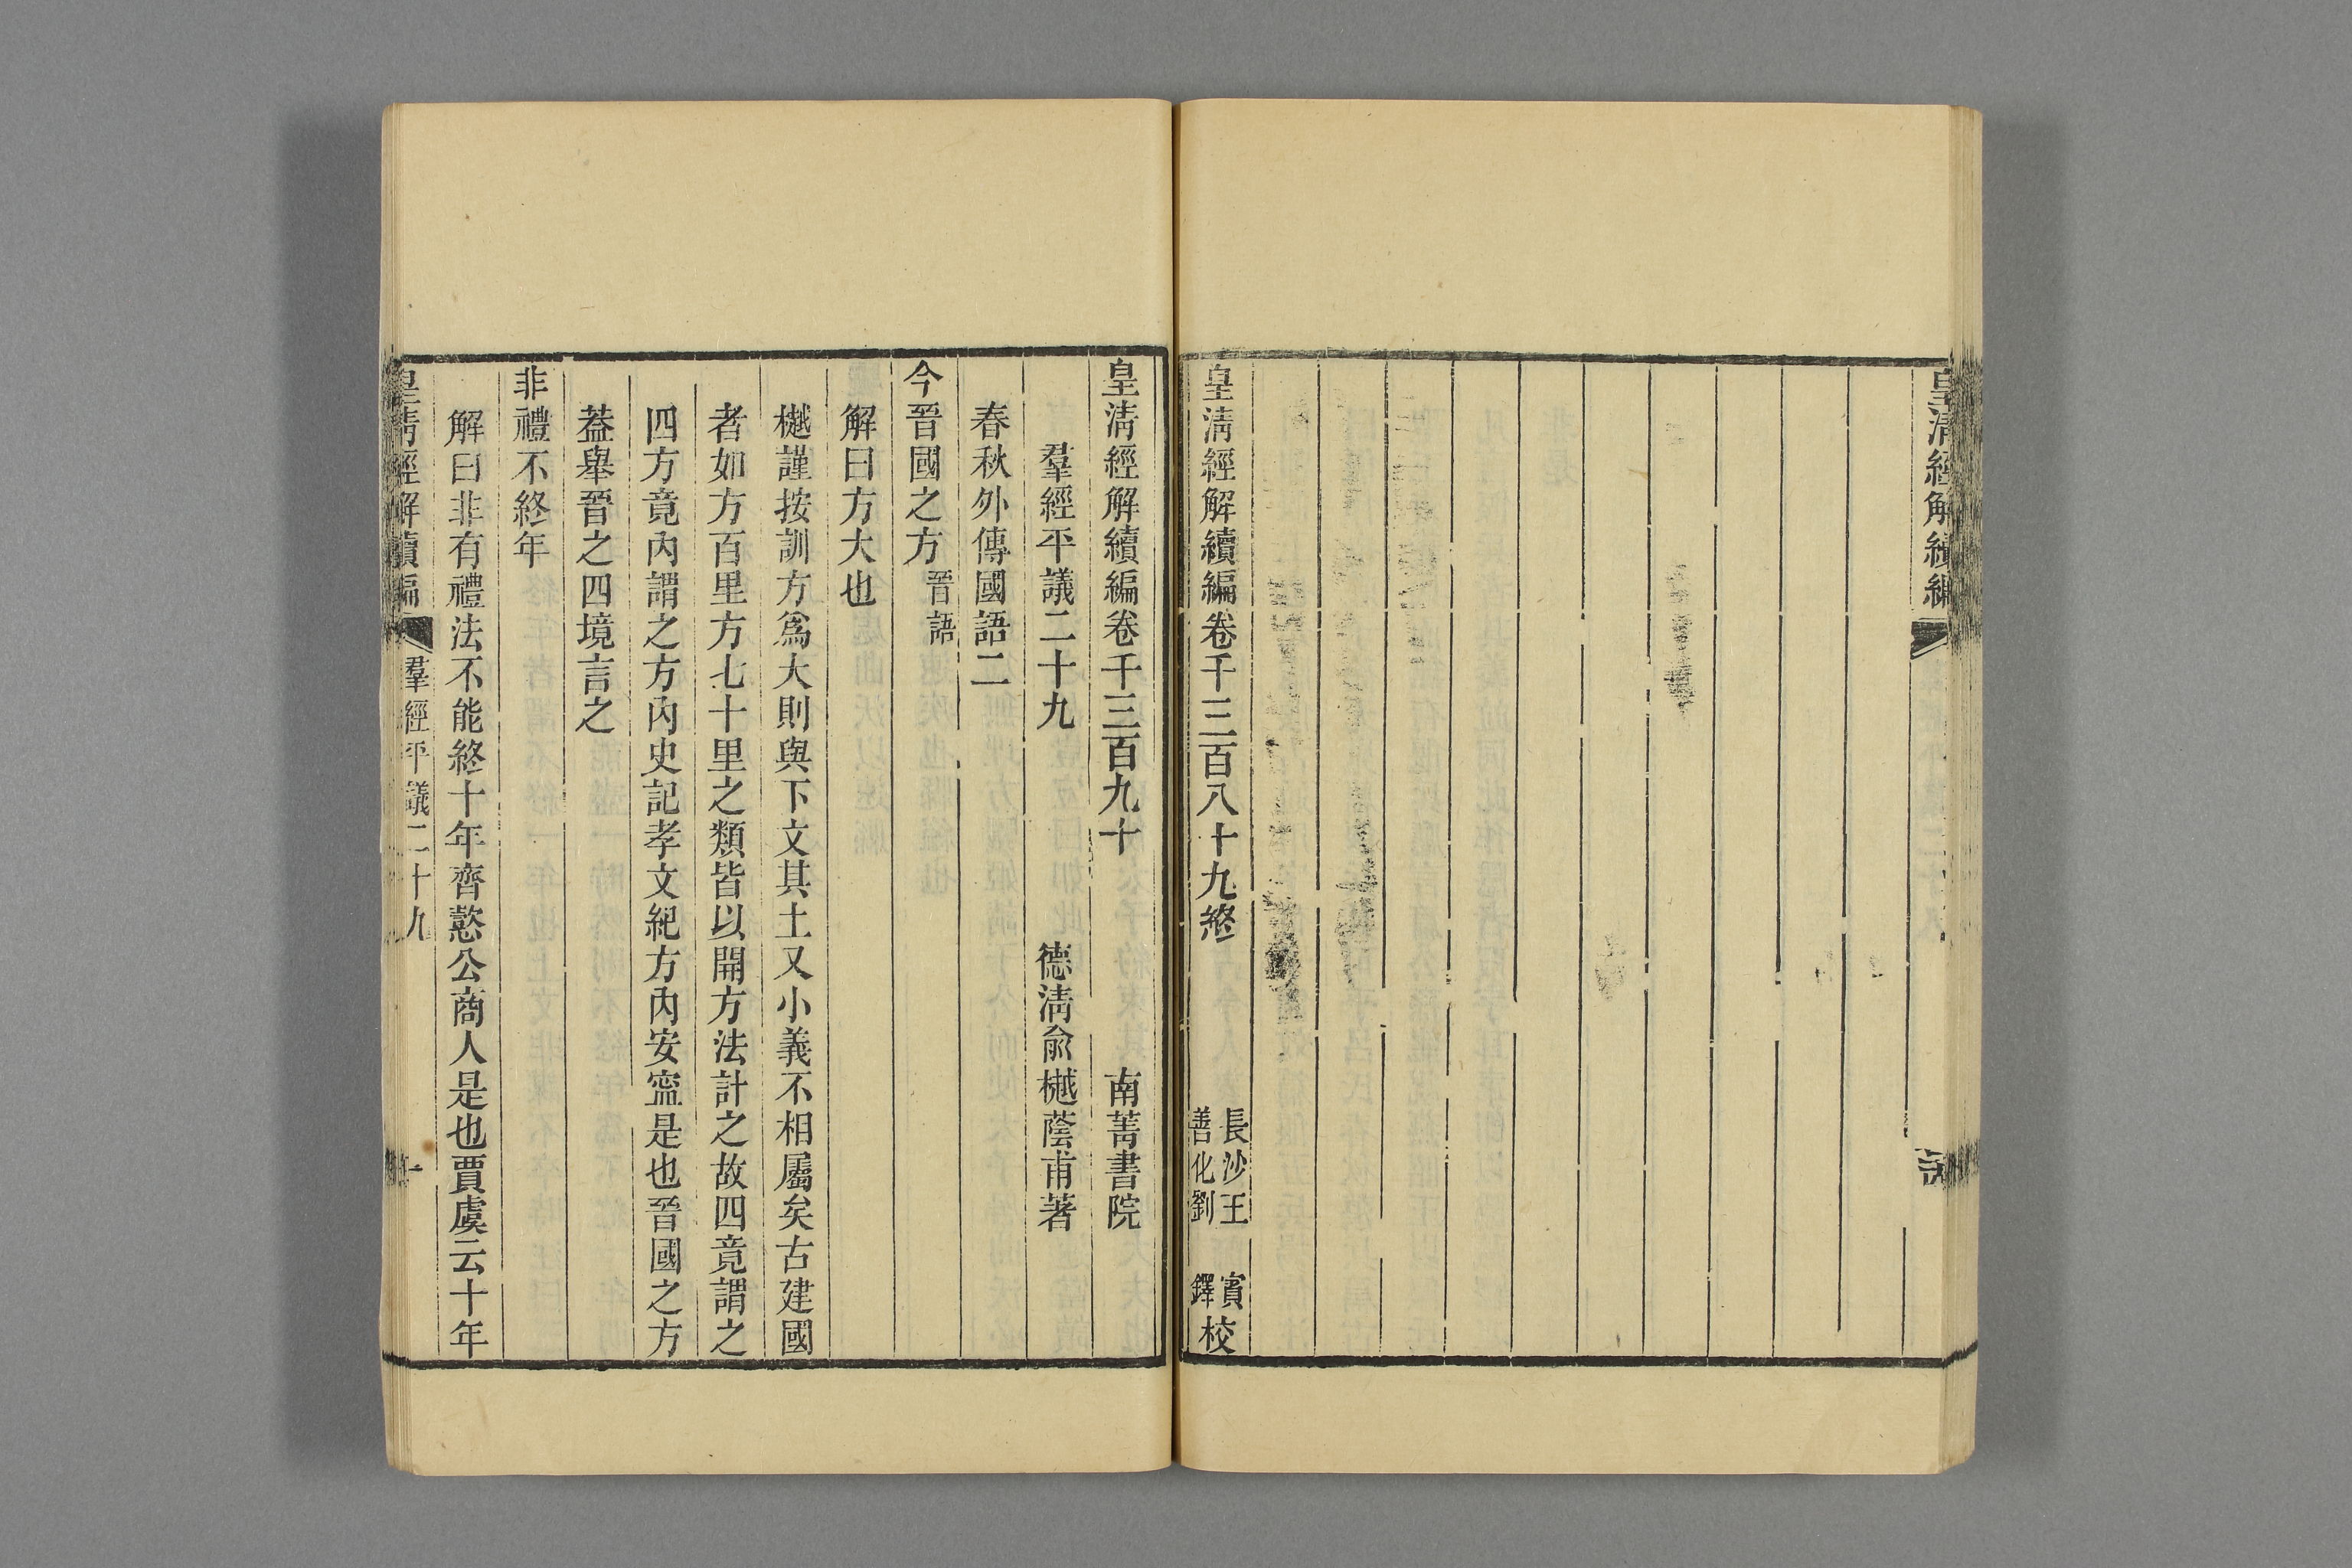 皇清經解續編
皇清經解續編卷千三百八十九終
長沙王 賓
善化劉 鐸
校
皇清經解續編卷千三百九十 南菁書院
羣經平議二十九 德清俞樾蔭甫著
春秋外傳國語二
今晉國之方晉語
解曰方大也
樾謹按訓方爲大則與下文其土又小義不相屬矣古建國
者如方百里方七十里之類皆以開方法計之故四竟謂之
四方竟內謂之方內史記孝文紀方內安寍是也晉國之方
葢舉晉之四境言之
非禮不終年
解曰非有禮法不能終十年齊懿公商人是也賈虞云十年
皇清經解續編 羣經平議二十九 一